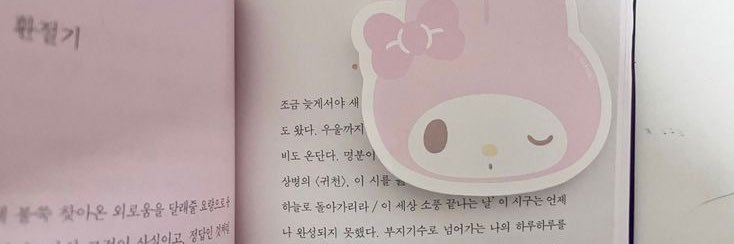 환절기
불쑥 찾아온 외로움을 달래줄 요량으로
사실이고, 정답인 것처럼
조금 늦게서야 새
도 왔다. 우울까지
비도 온단다. 명분이
상병의 〈귀천〉, 이 시를
하늘로 돌아가리라 / 이 세상 소풍 끝나는 날' 이 시구는 언제
나 완성되지 못했다. 부지기수로 넘어가는 나의 하루하루를